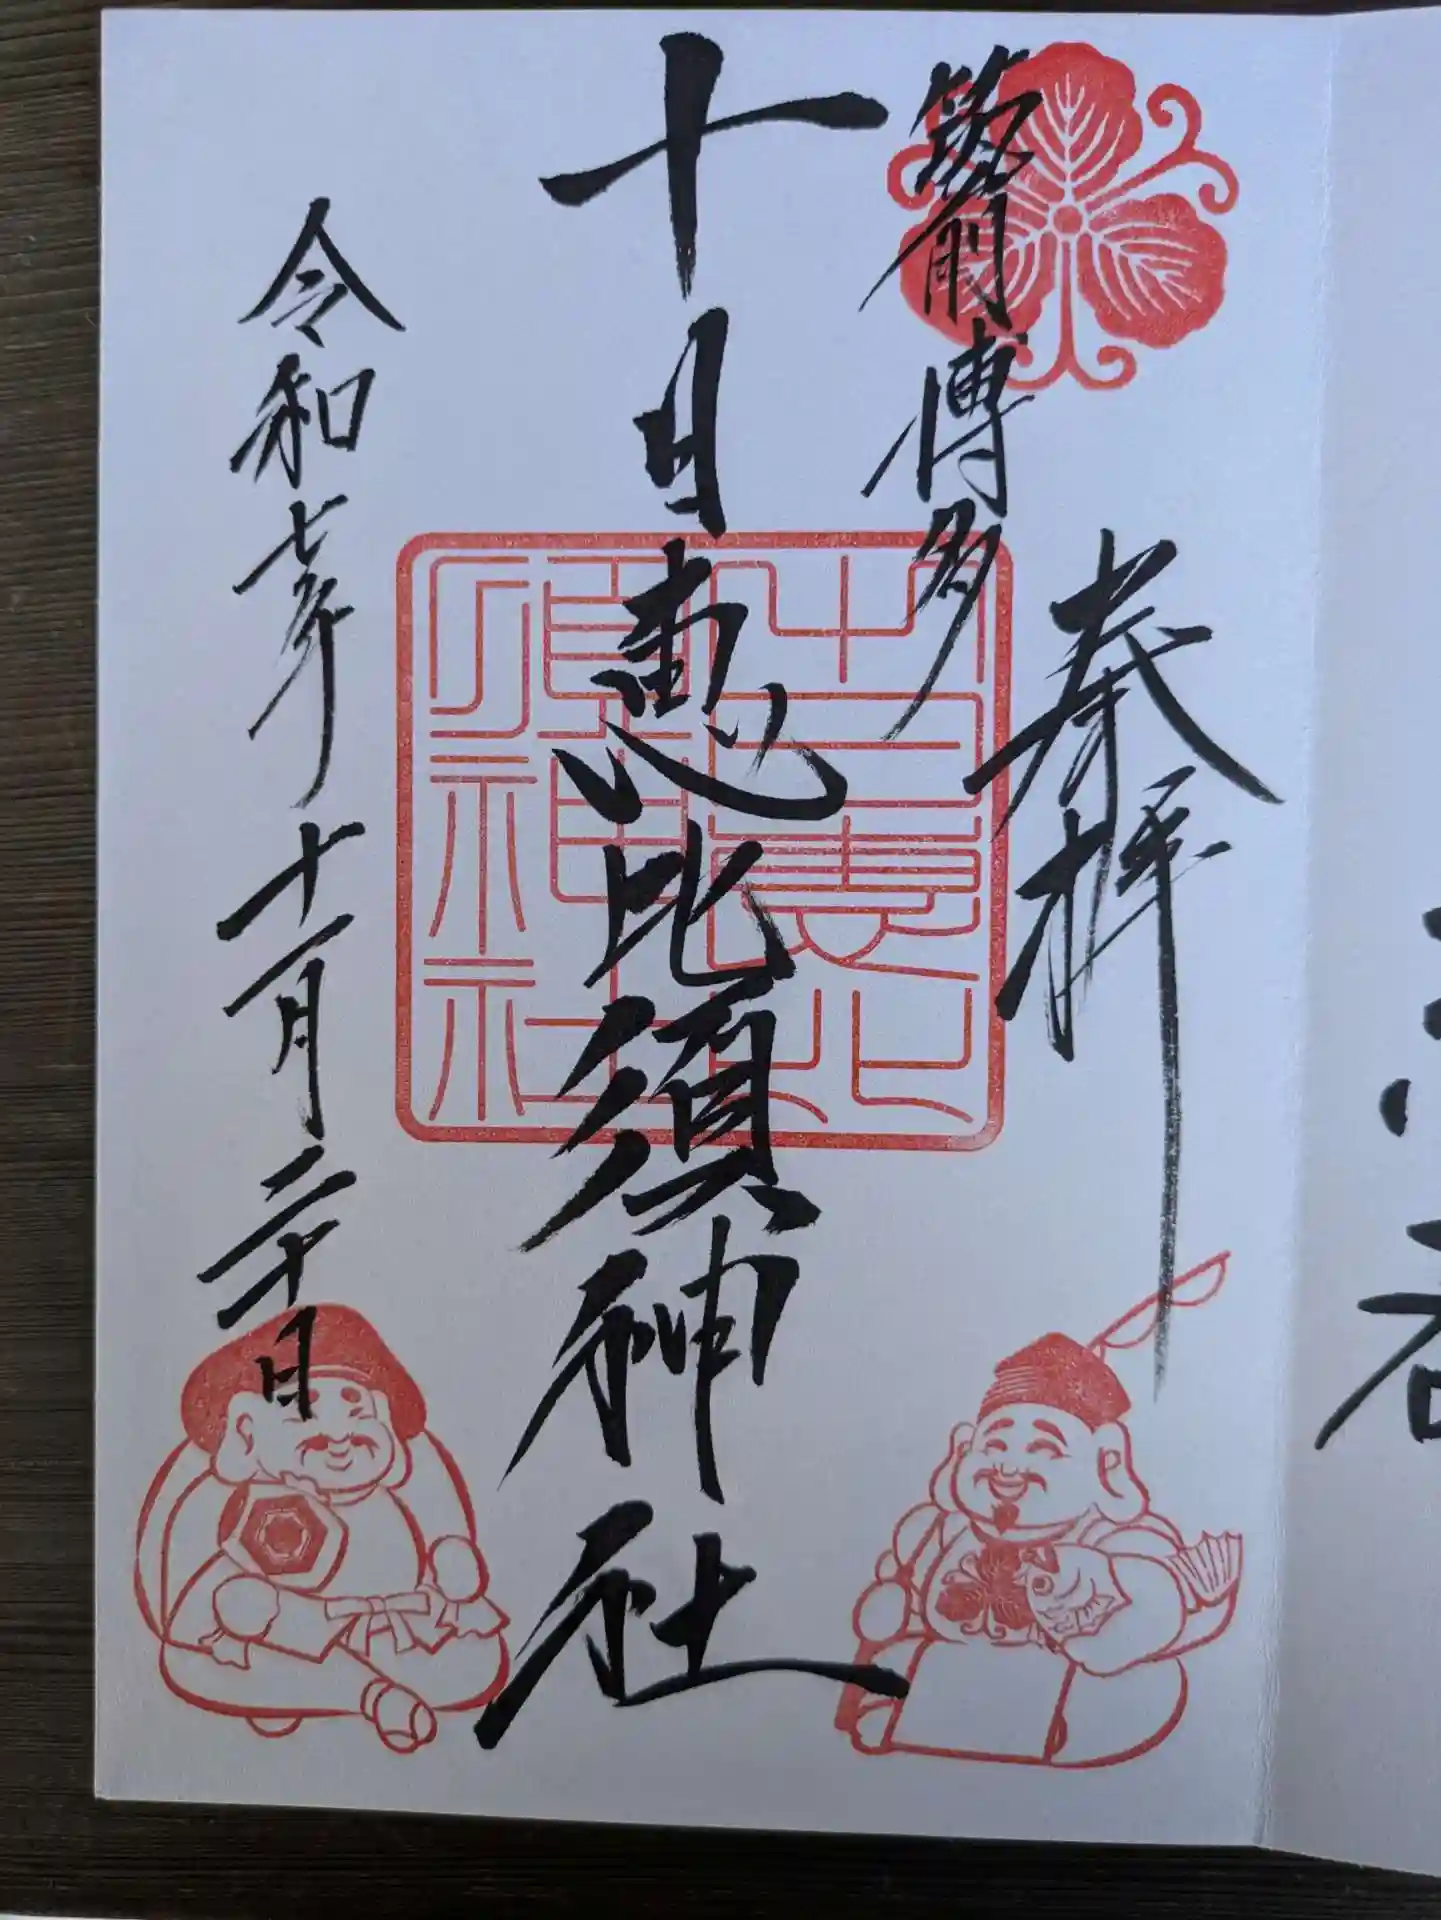 奉拝
筑前博多
十日恵比須神社
令和七年十一月二十日
十日恵比須神社